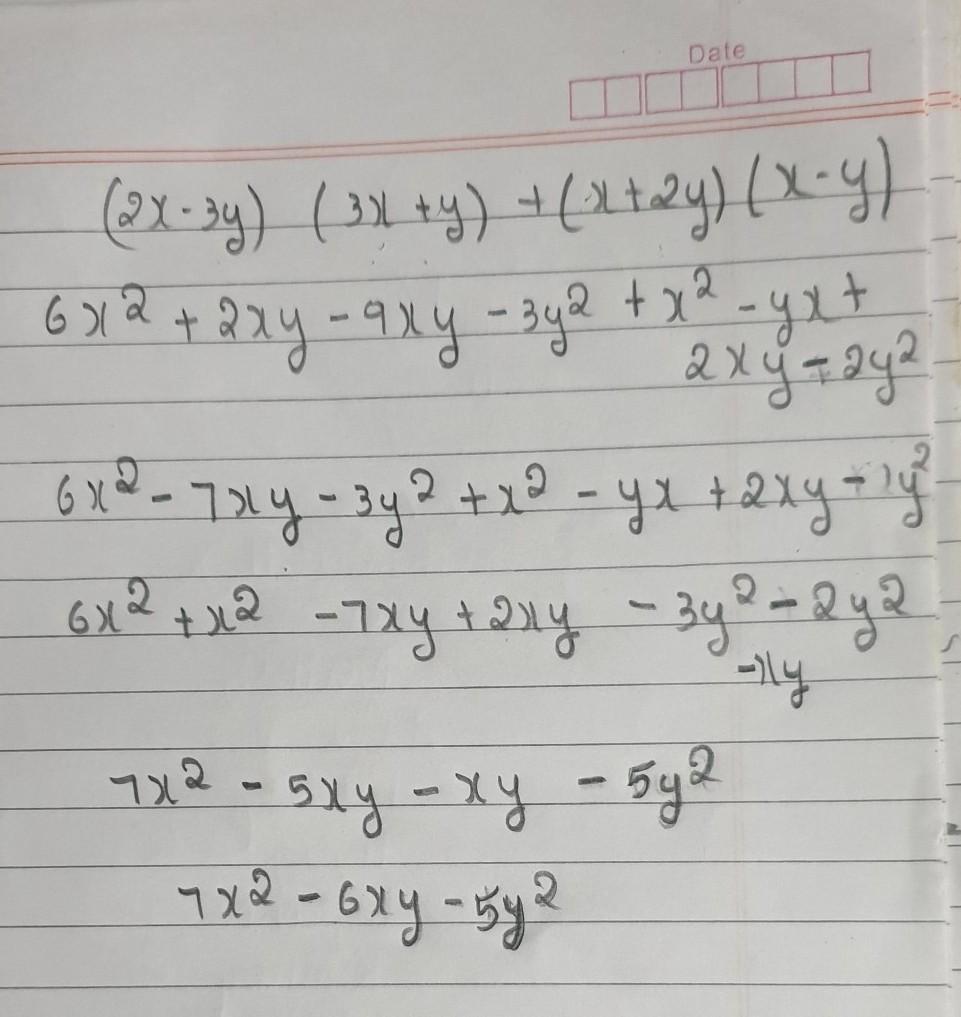 Date
(2x - 3y) (3x + y) + (x + 2y) (x - y)
6x² + 2xy - 9xy - 3y² + x² - yx +
2xy - 2y²
6x² - 7xy - 3y² + x² - yx + 2xy - y²
6x² + x² - 7xy + 2xy - 3y² - 2y²
- xy
7x² - 5xy - xy - 5y²
7x² - 6xy - 5y²